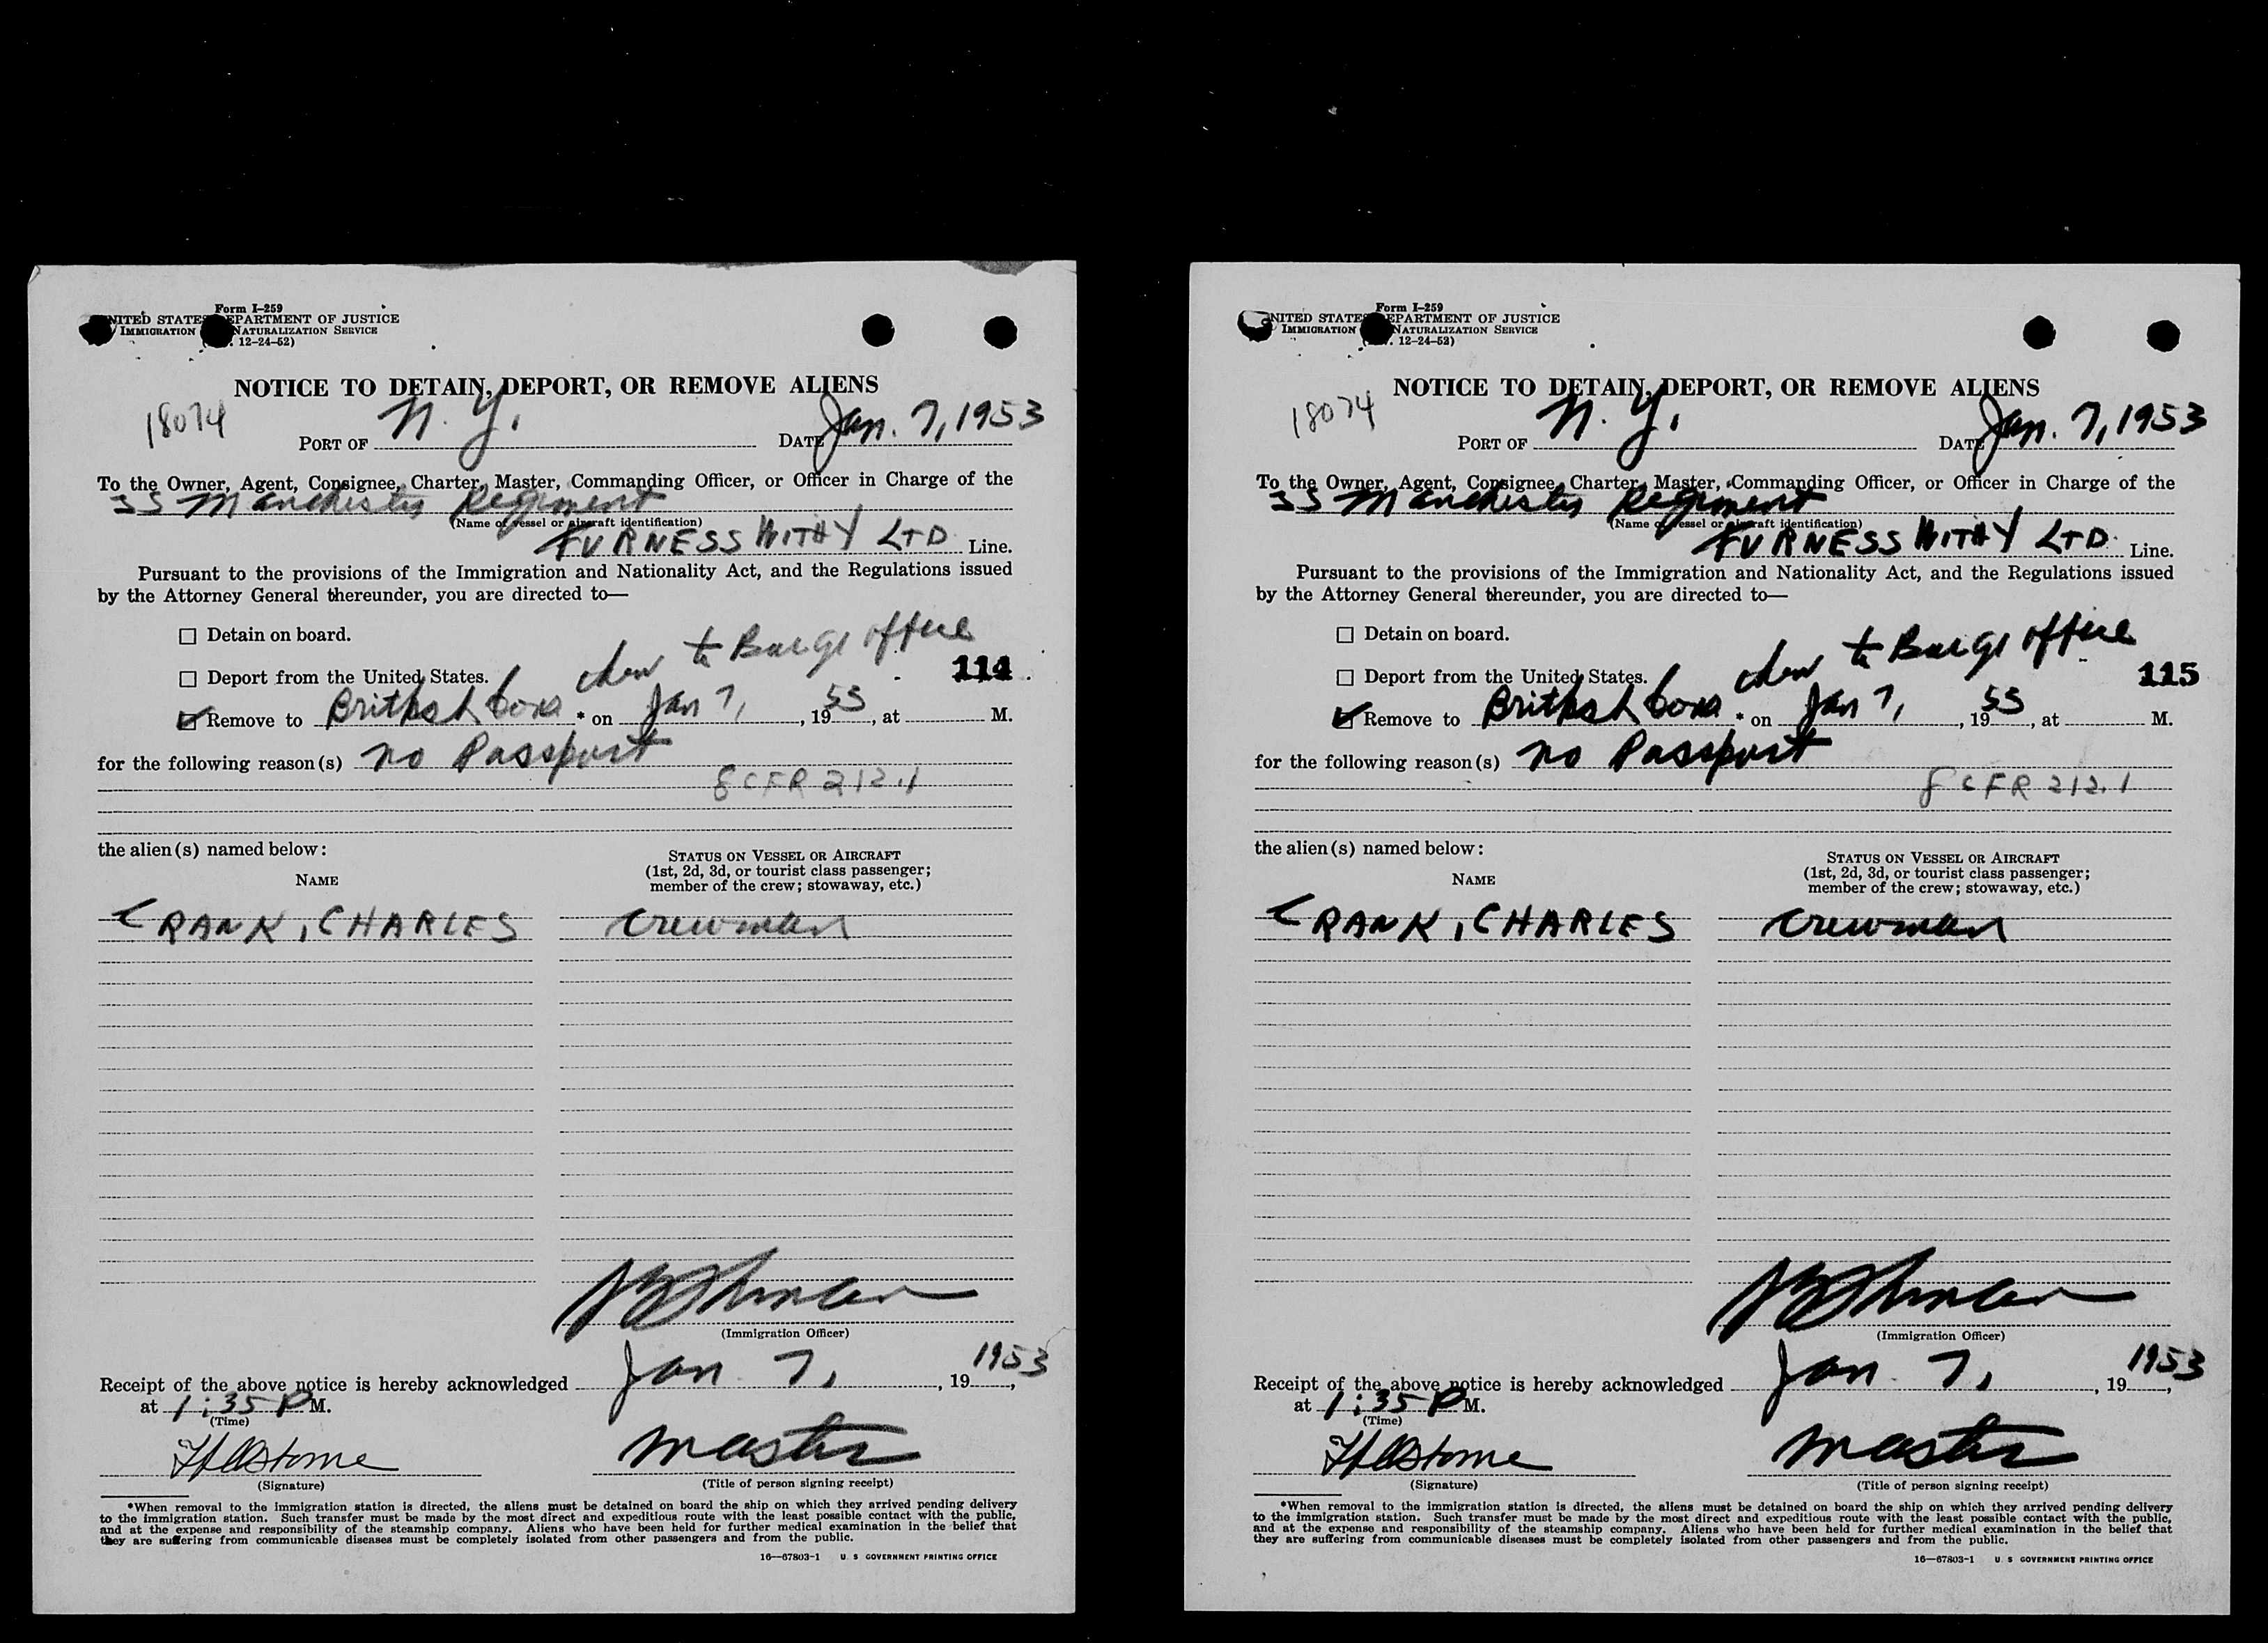 Form I-259
UNITED STATES DEPARTMENT OF JUSTICE
IMMIGRATION NATURALIZATION SERVICE
12-24-52)
NOTICE TO DETAIN, DEPORT, OR REMOVE ALIENS
18074
PORT OF N. Y. DATE Jan. 7, 1953
To the Owner, Agent, Consignee, Charter, Master, Commanding Officer, or Officer in Charge of the
SS Manchester Regiment
(Name of vessel or aircraft identification)
FURNESS WITHY LTD. Line.
Pursuant to the provisions of the Immigration and Nationality Act, and the Regulations issued
by the Attorney General thereunder, you are directed to—
☐ Detain on board.
to Barge office
☐ Deport from the United States.
114
☑ Remove to British * on Jan 7, , 1953, at M.
for the following reason(s) no Passport
8 CFR 212.1
the alien(s) named below:
NAME
STATUS ON VESSEL OR AIRCRAFT
(1st, 2d, 3d, or tourist class passenger;
member of the crew; stowaway, etc.)
CRANK, CHARLES crewman
(Immigration Officer)
Receipt of the above notice is hereby acknowledged Jan. 7, , 19 1953,
at 1:35 P M.
(Time)
master
(Signature) (Title of person signing receipt)
*When removal to the immigration station is directed, the aliens must be detained on board the ship on which they arrived pending delivery
to the immigration station. Such transfer must be made by the most direct and expeditious route with the least possible contact with the public,
and at the expense and responsibility of the steamship company. Aliens who have been held for further medical examination in the belief that
they are suffering from communicable diseases must be completely isolated from other passengers and from the public.
16—67803-1 U. S. GOVERNMENT PRINTING OFFICE
Form I-259
UNITED STATES DEPARTMENT OF JUSTICE
IMMIGRATION NATURALIZATION SERVICE
12-24-52)
NOTICE TO DETAIN, DEPORT, OR REMOVE ALIENS
18074
PORT OF N. Y. DATE Jan. 7, 1953
To the Owner, Agent, Consignee, Charter, Master, Commanding Officer, or Officer in Charge of the
SS Manchester Regiment
(Name of vessel or aircraft identification)
FURNESS WITHY LTD. Line.
Pursuant to the provisions of the Immigration and Nationality Act, and the Regulations issued
by the Attorney General thereunder, you are directed to—
☐ Detain on board.
to Barge office
☐ Deport from the United States.
115
☑ Remove to British * on Jan 7, , 1953, at M.
for the following reason(s) no Passport
8 CFR 212.1
the alien(s) named below:
NAME
STATUS ON VESSEL OR AIRCRAFT
(1st, 2d, 3d, or tourist class passenger;
member of the crew; stowaway, etc.)
CRANK, CHARLES crewman
(Immigration Officer)
Receipt of the above notice is hereby acknowledged Jan. 7, , 19 1953,
at 1:35 P M.
(Time)
master
(Signature) (Title of person signing receipt)
*When removal to the immigration station is directed, the aliens must be detained on board the ship on which they arrived pending delivery
to the immigration station. Such transfer must be made by the most direct and expeditious route with the least possible contact with the public,
and at the expense and responsibility of the steamship company. Aliens who have been held for further medical examination in the belief that
they are suffering from communicable diseases must be completely isolated from other passengers and from the public.
16—67803-1 U. S. GOVERNMENT PRINTING OFFICE